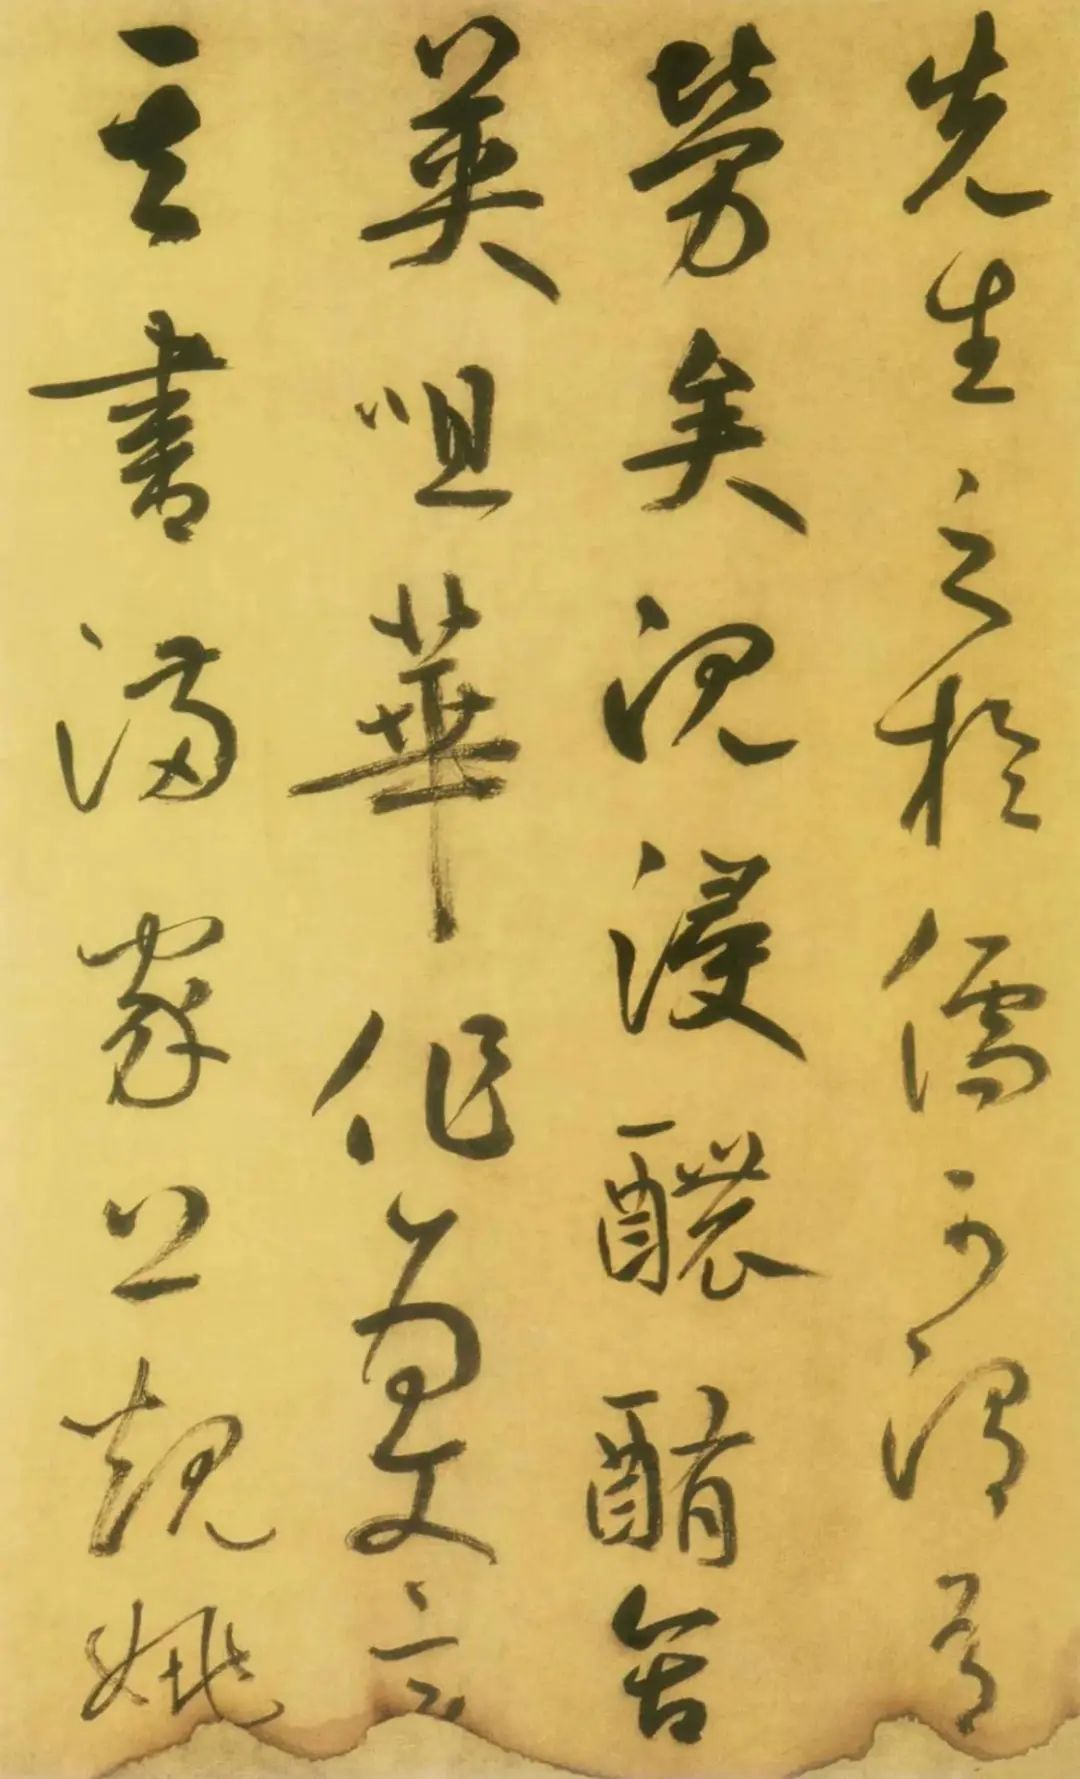 先生之於儒可謂有
勞矣沉浸醲酭含
英咀華作為文章
其書滿家上規姚